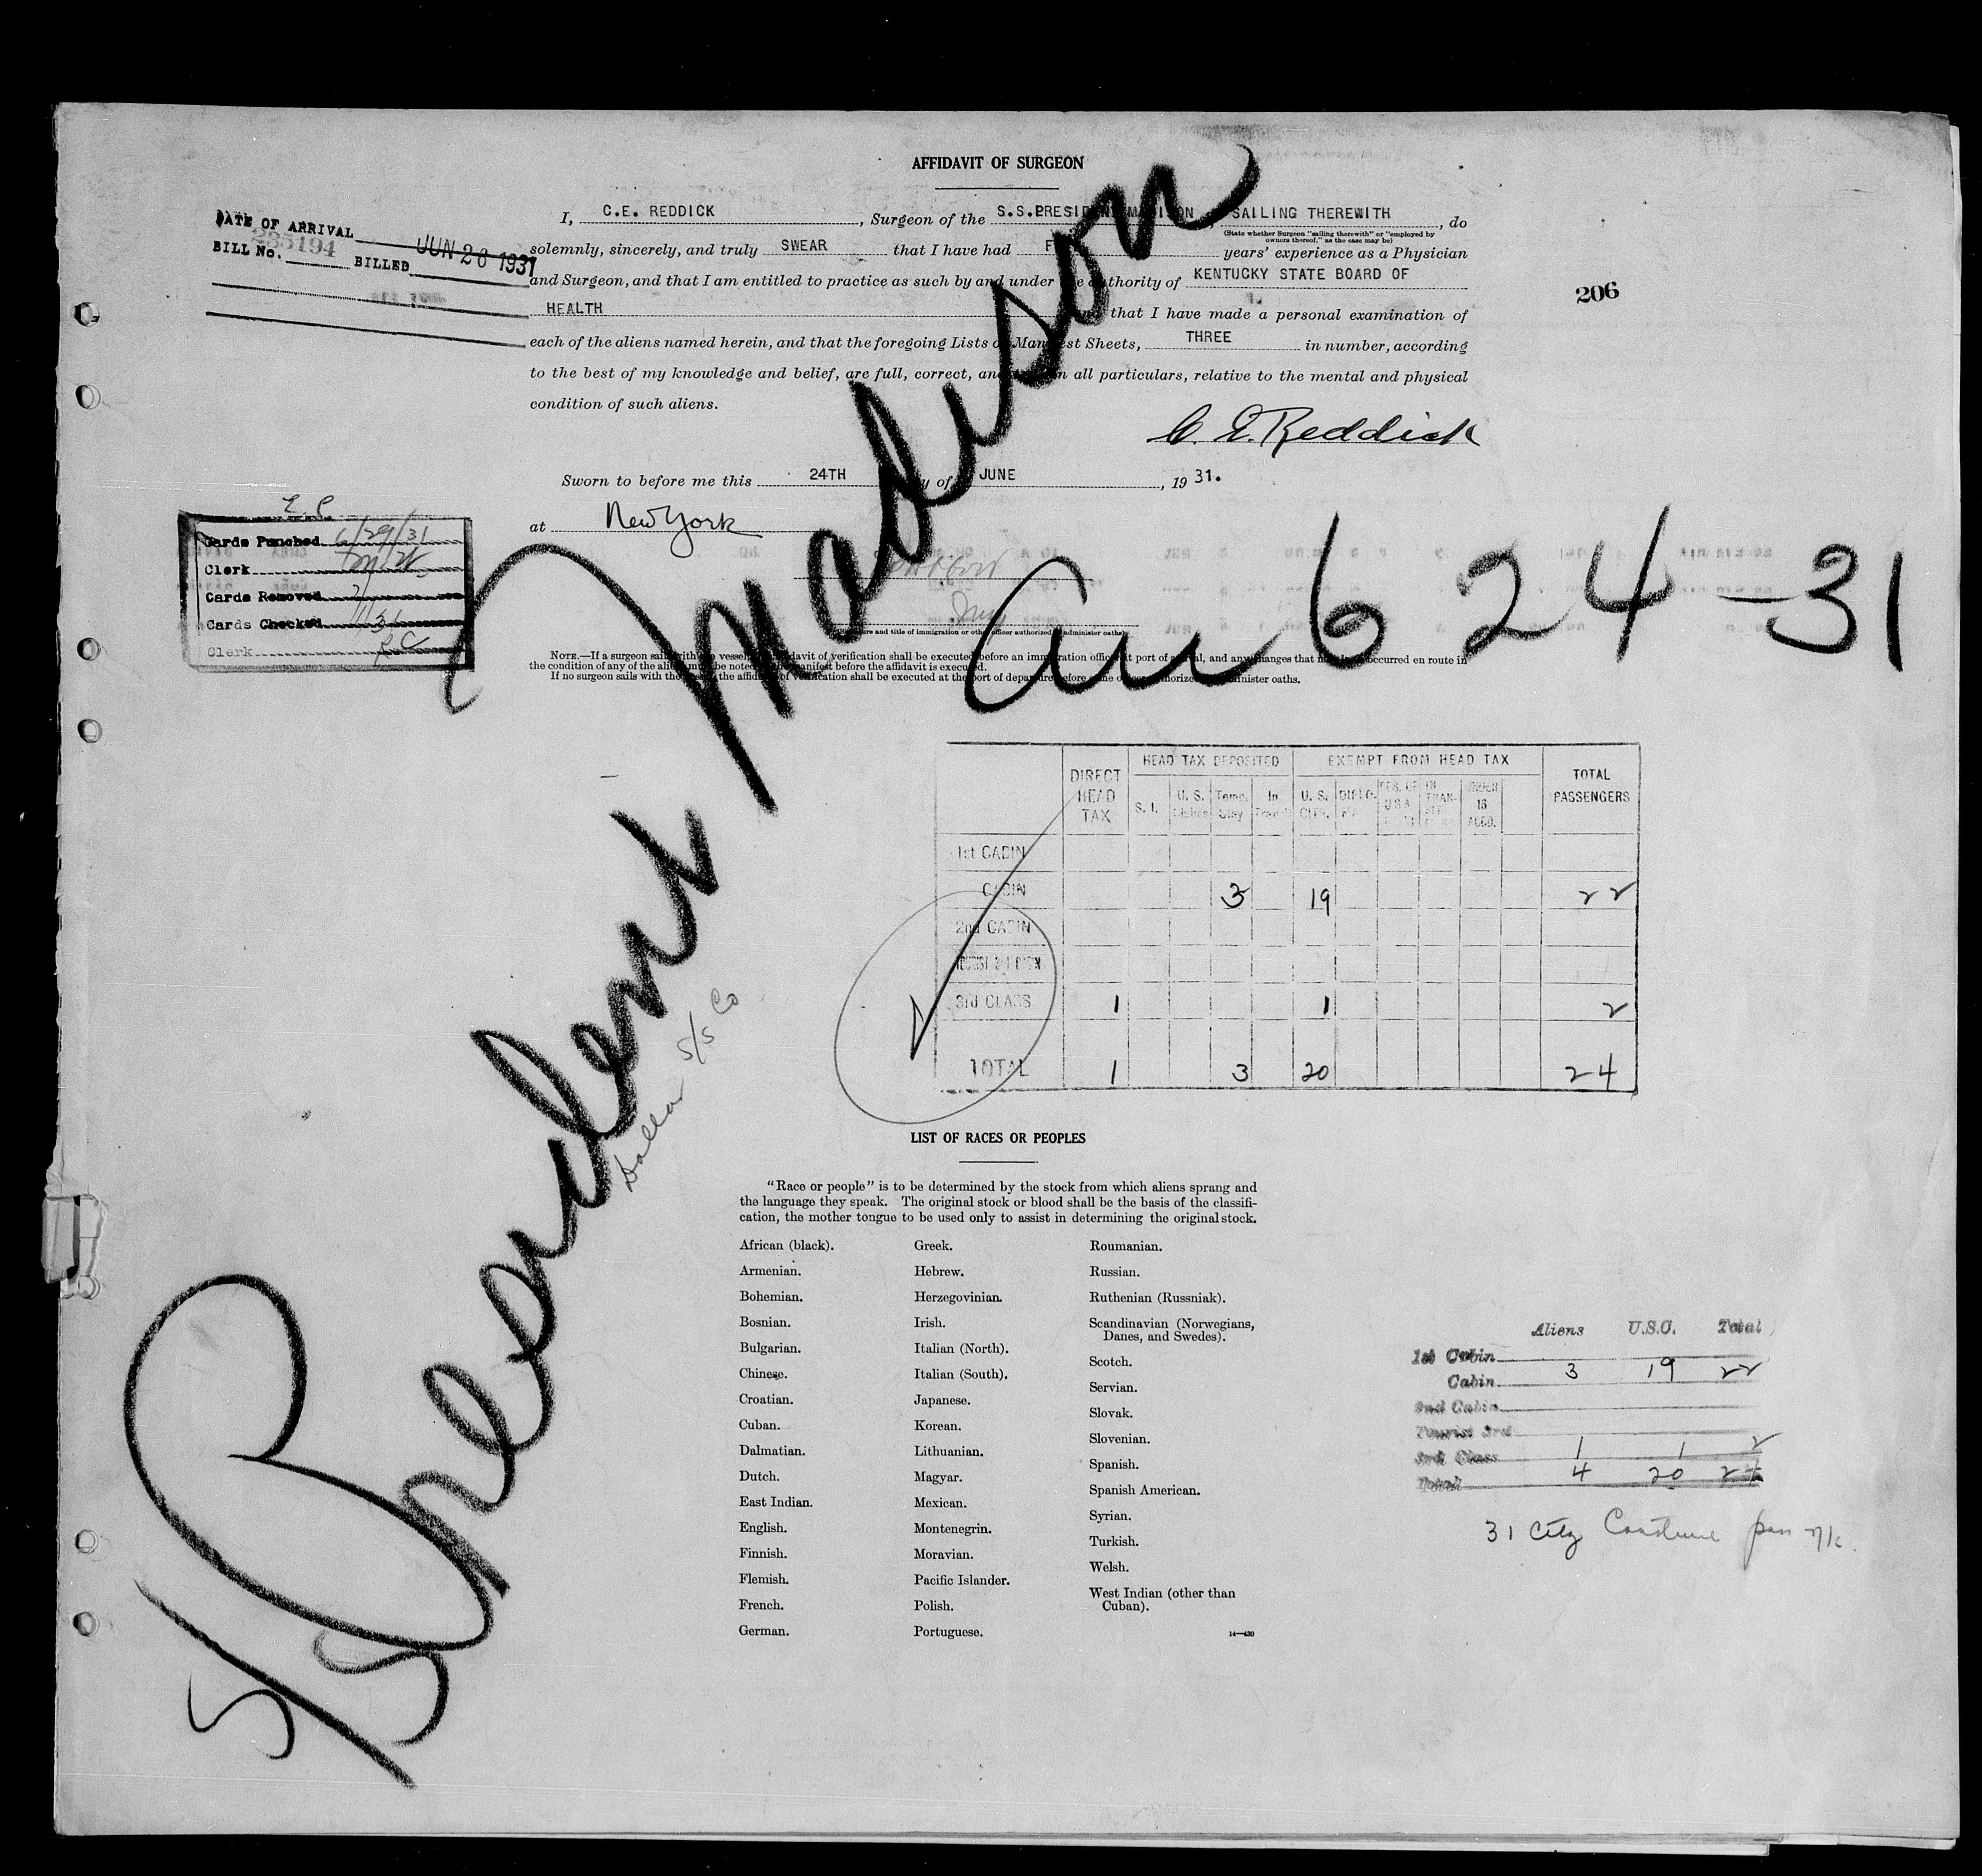 AFFIDAVIT OF SURGEON
DATE OF ARRIVAL JUN 26 1931
BILL No. 285194 BILLED
206
I, C.E. REDDICK, Surgeon of the S.S.PRESIDENT MADISON, SAILING THEREWITH, do
(State whether Surgeon "sailing therewith" or "employed by
owners thereof," as the case may be)
solemnly, sincerely, and truly SWEAR that I have had years' experience as a Physician
and Surgeon, and that I am entitled to practice as such by and under the authority of KENTUCKY STATE BOARD OF
HEALTH that I have made a personal examination of
each of the aliens named herein, and that the foregoing Lists or Manifest Sheets, THREE in number, according
to the best of my knowledge and belief, are full, correct, and in all particulars, relative to the mental and physical
condition of such aliens.
C. E. Reddick
Sworn to before me this 24TH day of JUNE, 19 31.
at New York
Cards Punched 6/29/31
Clerk
Cards Removed
Cards Checked
Clerk
President Madison
Arr 6 24-31
Signature and title of immigration or other officer authorized to administer oaths
NOTE.—If a surgeon sails with the vessel, affidavit of verification shall be executed before an immigration officer at port of arrival, and any changes that may have occurred en route in
the condition of any of the aliens must be noted on manifest before the affidavit is executed.
If no surgeon sails with the vessel, the affidavit of verification shall be executed at the port of departure before one of authorized to administer oaths.
DIRECT HEAD TAX HEAD TAX DEPOSITED EXEMPT FROM HEAD TAX TOTAL PASSENGERS
S. I. U. S. Temp. Stay In Transit U. S. Citz. UNDER 16 ACCD.
1st CABIN
CABIN 3 19 22
2nd CABIN
TOURIST 3rd CABIN
3rd CLASS 1 1 2
TOTAL 1 3 20 24
Dollar S/S Co
LIST OF RACES OR PEOPLES
"Race or people" is to be determined by the stock from which aliens sprang and
the language they speak. The original stock or blood shall be the basis of the classifi-
cation, the mother tongue to be used only to assist in determining the original stock.
African (black).
Armenian.
Bohemian.
Bosnian.
Bulgarian.
Chinese.
Croatian.
Cuban.
Dalmatian.
Dutch.
East Indian.
English.
Finnish.
Flemish.
French.
German.
Greek.
Hebrew.
Herzegovinian.
Irish.
Italian (North).
Italian (South).
Japanese.
Korean.
Lithuanian.
Magyar.
Mexican.
Montenegrin.
Moravian.
Pacific Islander.
Polish.
Portuguese.
Roumanian.
Russian.
Ruthenian (Russniak).
Scandinavian (Norwegians,
Danes, and Swedes).
Scotch.
Servian.
Slovak.
Slovenian.
Spanish.
Spanish American.
Syrian.
Turkish.
Welsh.
West Indian (other than
Cuban).
14—430
Aliens U.S.C. Total
1st Cabin
Cabin 3 19 22
2nd Cabin
Tourist 3rd
3rd Class 1 1 2
Total 4 20 24
31 City